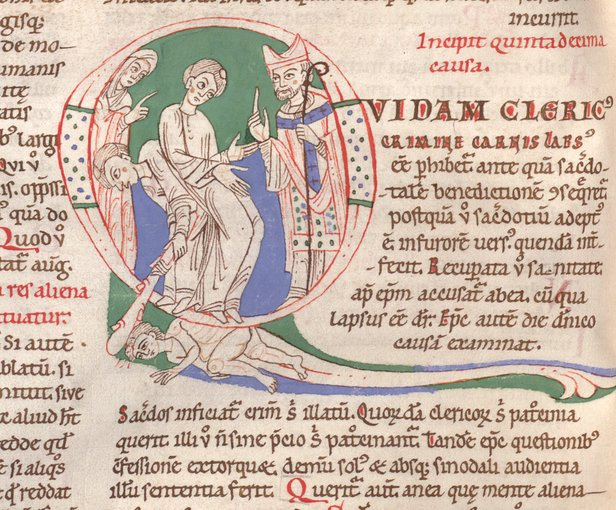 gisq;
de mo-
umanis
itę
atis
b' largi
Qui ṽ
is. opssi
qua do
Quod ṽ
tat aug.
a res aliena
tuatur.
Si autē
blatū. si
nituit. sive
e aliud ht̄
edde qd̄
si aliqͥs
q̄ reddat
incurrit.
Incipit quinta decima
causa.
QVIDAM CLERIC'
CRIMINE CARNIS LAPS'
eē phibet᷑ ante quā sac̄do-
talē benedictionē ꝯseqͥret᷑
postquā ṽ sac̄dotiū adept'
ē in furore vers' quendā int̄-
fecit. Recupata ṽ sanitate
ap ep̄m accusat᷑ ab ea. cū qua
lapsus eē dr̄. Ep̄c autē die dn̄ico
causā examinat.
Sac̄dos inficiat᷑ crim̄ s' illatū. Quorūdā clericoꝝ s' patrocinia
querit. illi ṽ n̄ sine p̄cio s' patrocinant᷑. Tandē ep̄c questionib'
ꝯfessionē extorquet. demū sol' & absq; sinodali audientia
illū sententia ferit. Querit᷑ aut̄. an ea quę mente aliena-